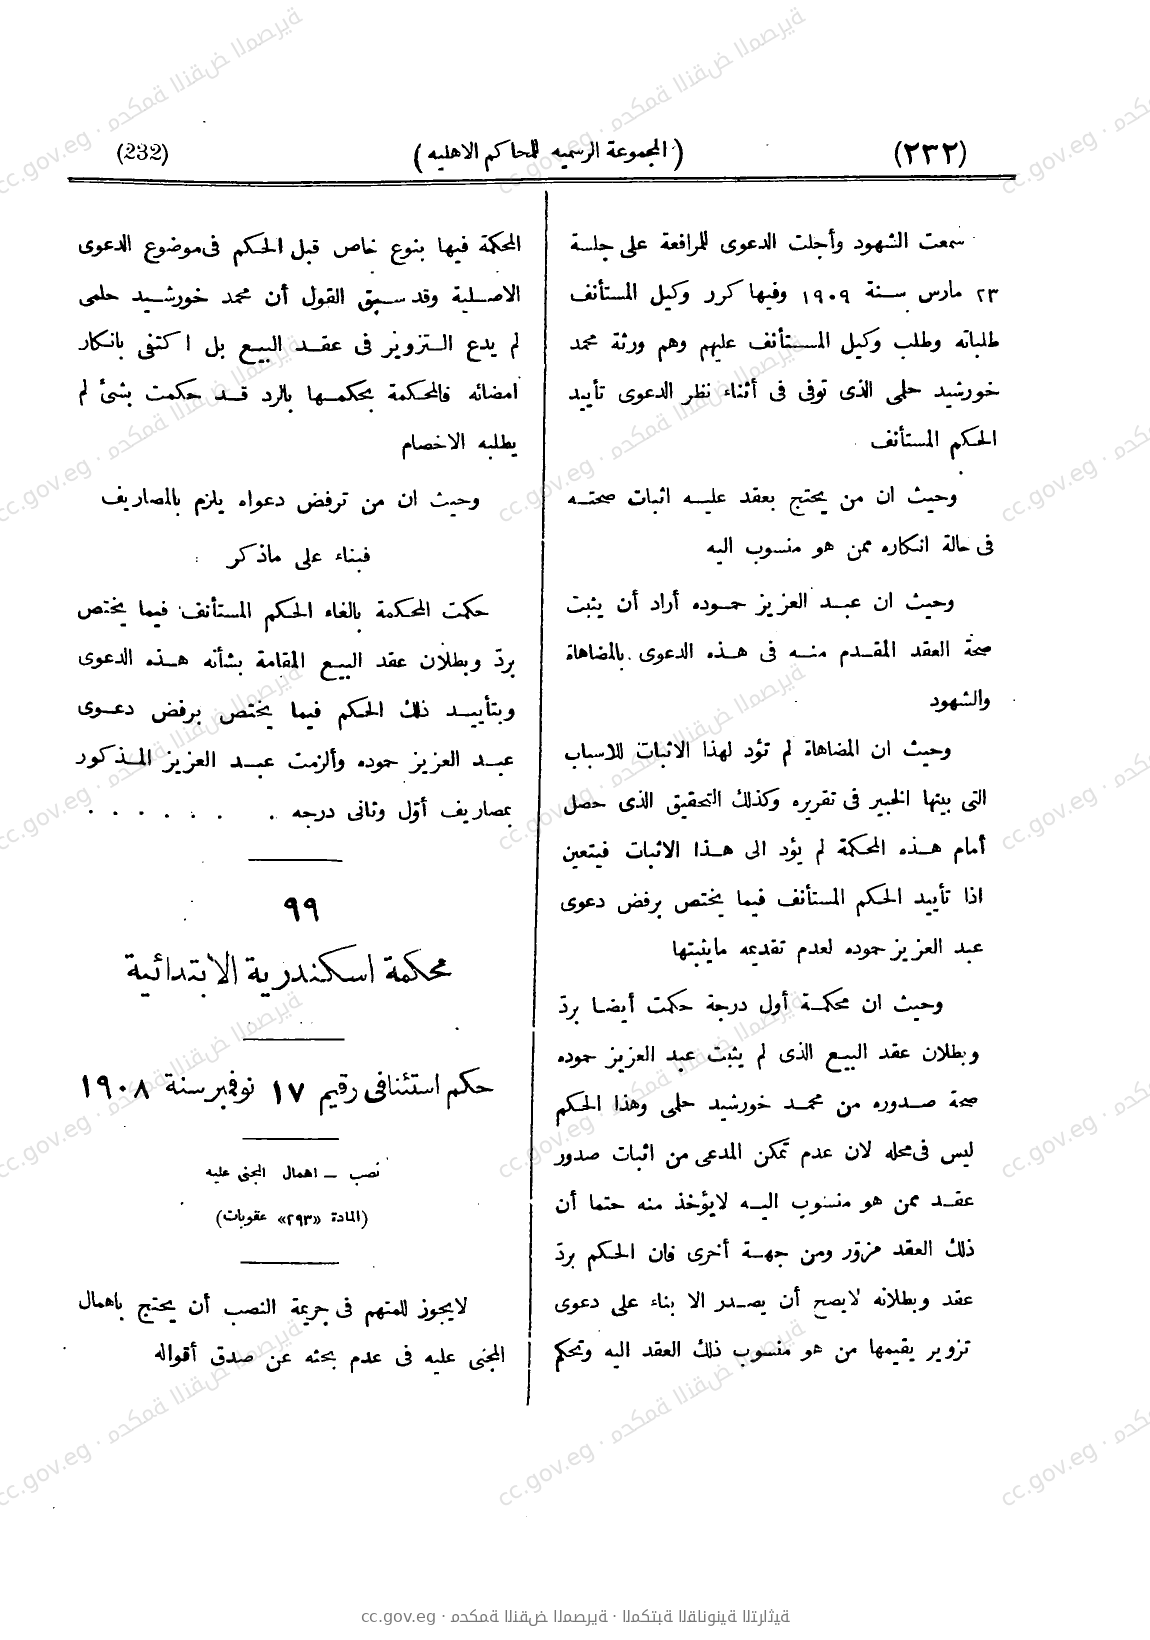 (٢٣٢)
(المجموعة الرسميه للمحاكم الاهليه)
(232)
سمعت الشهود وأجلت الدعوى للمرافعة على جلسة
٢٣ مارس سنة ١٩٠٩ وفيها كرر وكيل المستأنف
طلباته وطلب وكيل المستأنف عليهم وهم ورثة محمد
خورشيد حلمى الذى توفى فى أثناء نظر الدعوى تأييد
الحكم المستأنف
وحيث ان من يحتج بعقد عليه اثبات صحته
فى حالة انكاره ممن هو منسوب اليه
وحيث ان عبد العزيز حموده أراد أن يثبت
صحة العقد المقدم منه فى هذه الدعوى بالمضاهاة
والشهود
وحيث ان المضاهاة لم تؤد لهذا الاثبات للاسباب
التى بينها الخبير فى تقريره وكذلك التحقيق الذى حصل
أمام هذه المحكمة لم يؤد الى هذا الاثبات فيتعين
اذا تأييد الحكم المستأنف فيما يختص برفض دعوى
عبد العزيز حموده لعدم تقديمه مايثبتها
وحيث ان محكمة أول درجة حكمت أيضا بردّ
وبطلان عقد البيع الذى لم يثبت عبد العزيز حموده
صحة صدوره من محمد خورشيد حلمى وهذا الحكم
ليس فى محله لان عدم تمكن المدعى من اثبات صدور
عقد ممن هو منسوب اليه لايؤخذ منه حتما أن
ذلك العقد مزوّر ومن جهة أخرى فان الحكم بردّ
عقد وبطلانه لايصح أن يصدر الا بناء على دعوى
تزوير يقيمها من هو منسوب ذلك العقد اليه وتحكم
المحكمة فيها بنوع خاص قبل الحكم فى موضوع الدعوى
الاصلية وقد سبق القول أن محمد خورشيد حلمى
لم يدع التزوير فى عقد البيع بل اكتفى بانكار
امضائه فالمحكمة بحكمها بالرد قد حكمت بشئ لم
يطلبه الاخصام
وحيث ان من ترفض دعواه يلزم بالمصاريف
فبناء على ماذكر :
حكمت المحكمة بالغاء الحكم المستأنف فيما يختص
بردّ وبطلان عقد البيع المقامة بشأنه هذه الدعوى
وبتأييد ذلك الحكم فيما يختص برفض دعوى
عبد العزيز حموده وألزمت عبد العزيز المذكور
بمصاريف أوّل وثانى درجه . . . . . . .
٩٩
محكمة اسكندرية الابتدائية
حكم استئنافى رقيم ١٧ نوفمبر سنة ١٩٠٨
نصب ــ اهمال المجنى عليه
(المادة «٢٩٣» عقوبات)
لايجوز للمتهم فى جريمة النصب أن يحتج باهمال
المجنى عليه فى عدم بحثه عن صدق أقواله
cc.gov.eg · محكمة النقض المصرية · المكتبة القانونية التراثية